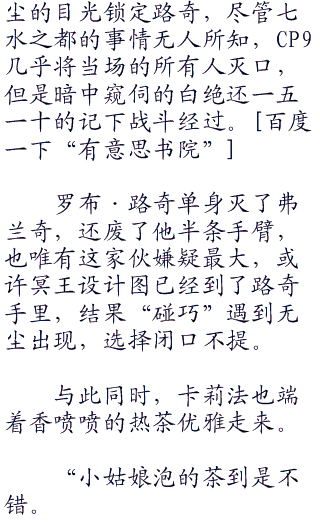 尘的目光锁定路奇，尽管七
水之都的事情无人所知，CP9
几乎将当场的所有人灭口，
但是暗中窥伺的白绝还一五
一十的记下战斗经过。[百度
一下“有意思书院”]
罗布·路奇单身灭了弗
兰奇，还废了他半条手臂，
也唯有这家伙嫌疑最大，或
许冥王设计图已经到了路奇
手里，结果“碰巧”遇到无
尘出现，选择闭口不提。
与此同时，卡莉法也端
着香喷喷的热茶优雅走来。
“小姑娘泡的茶到是不
错。